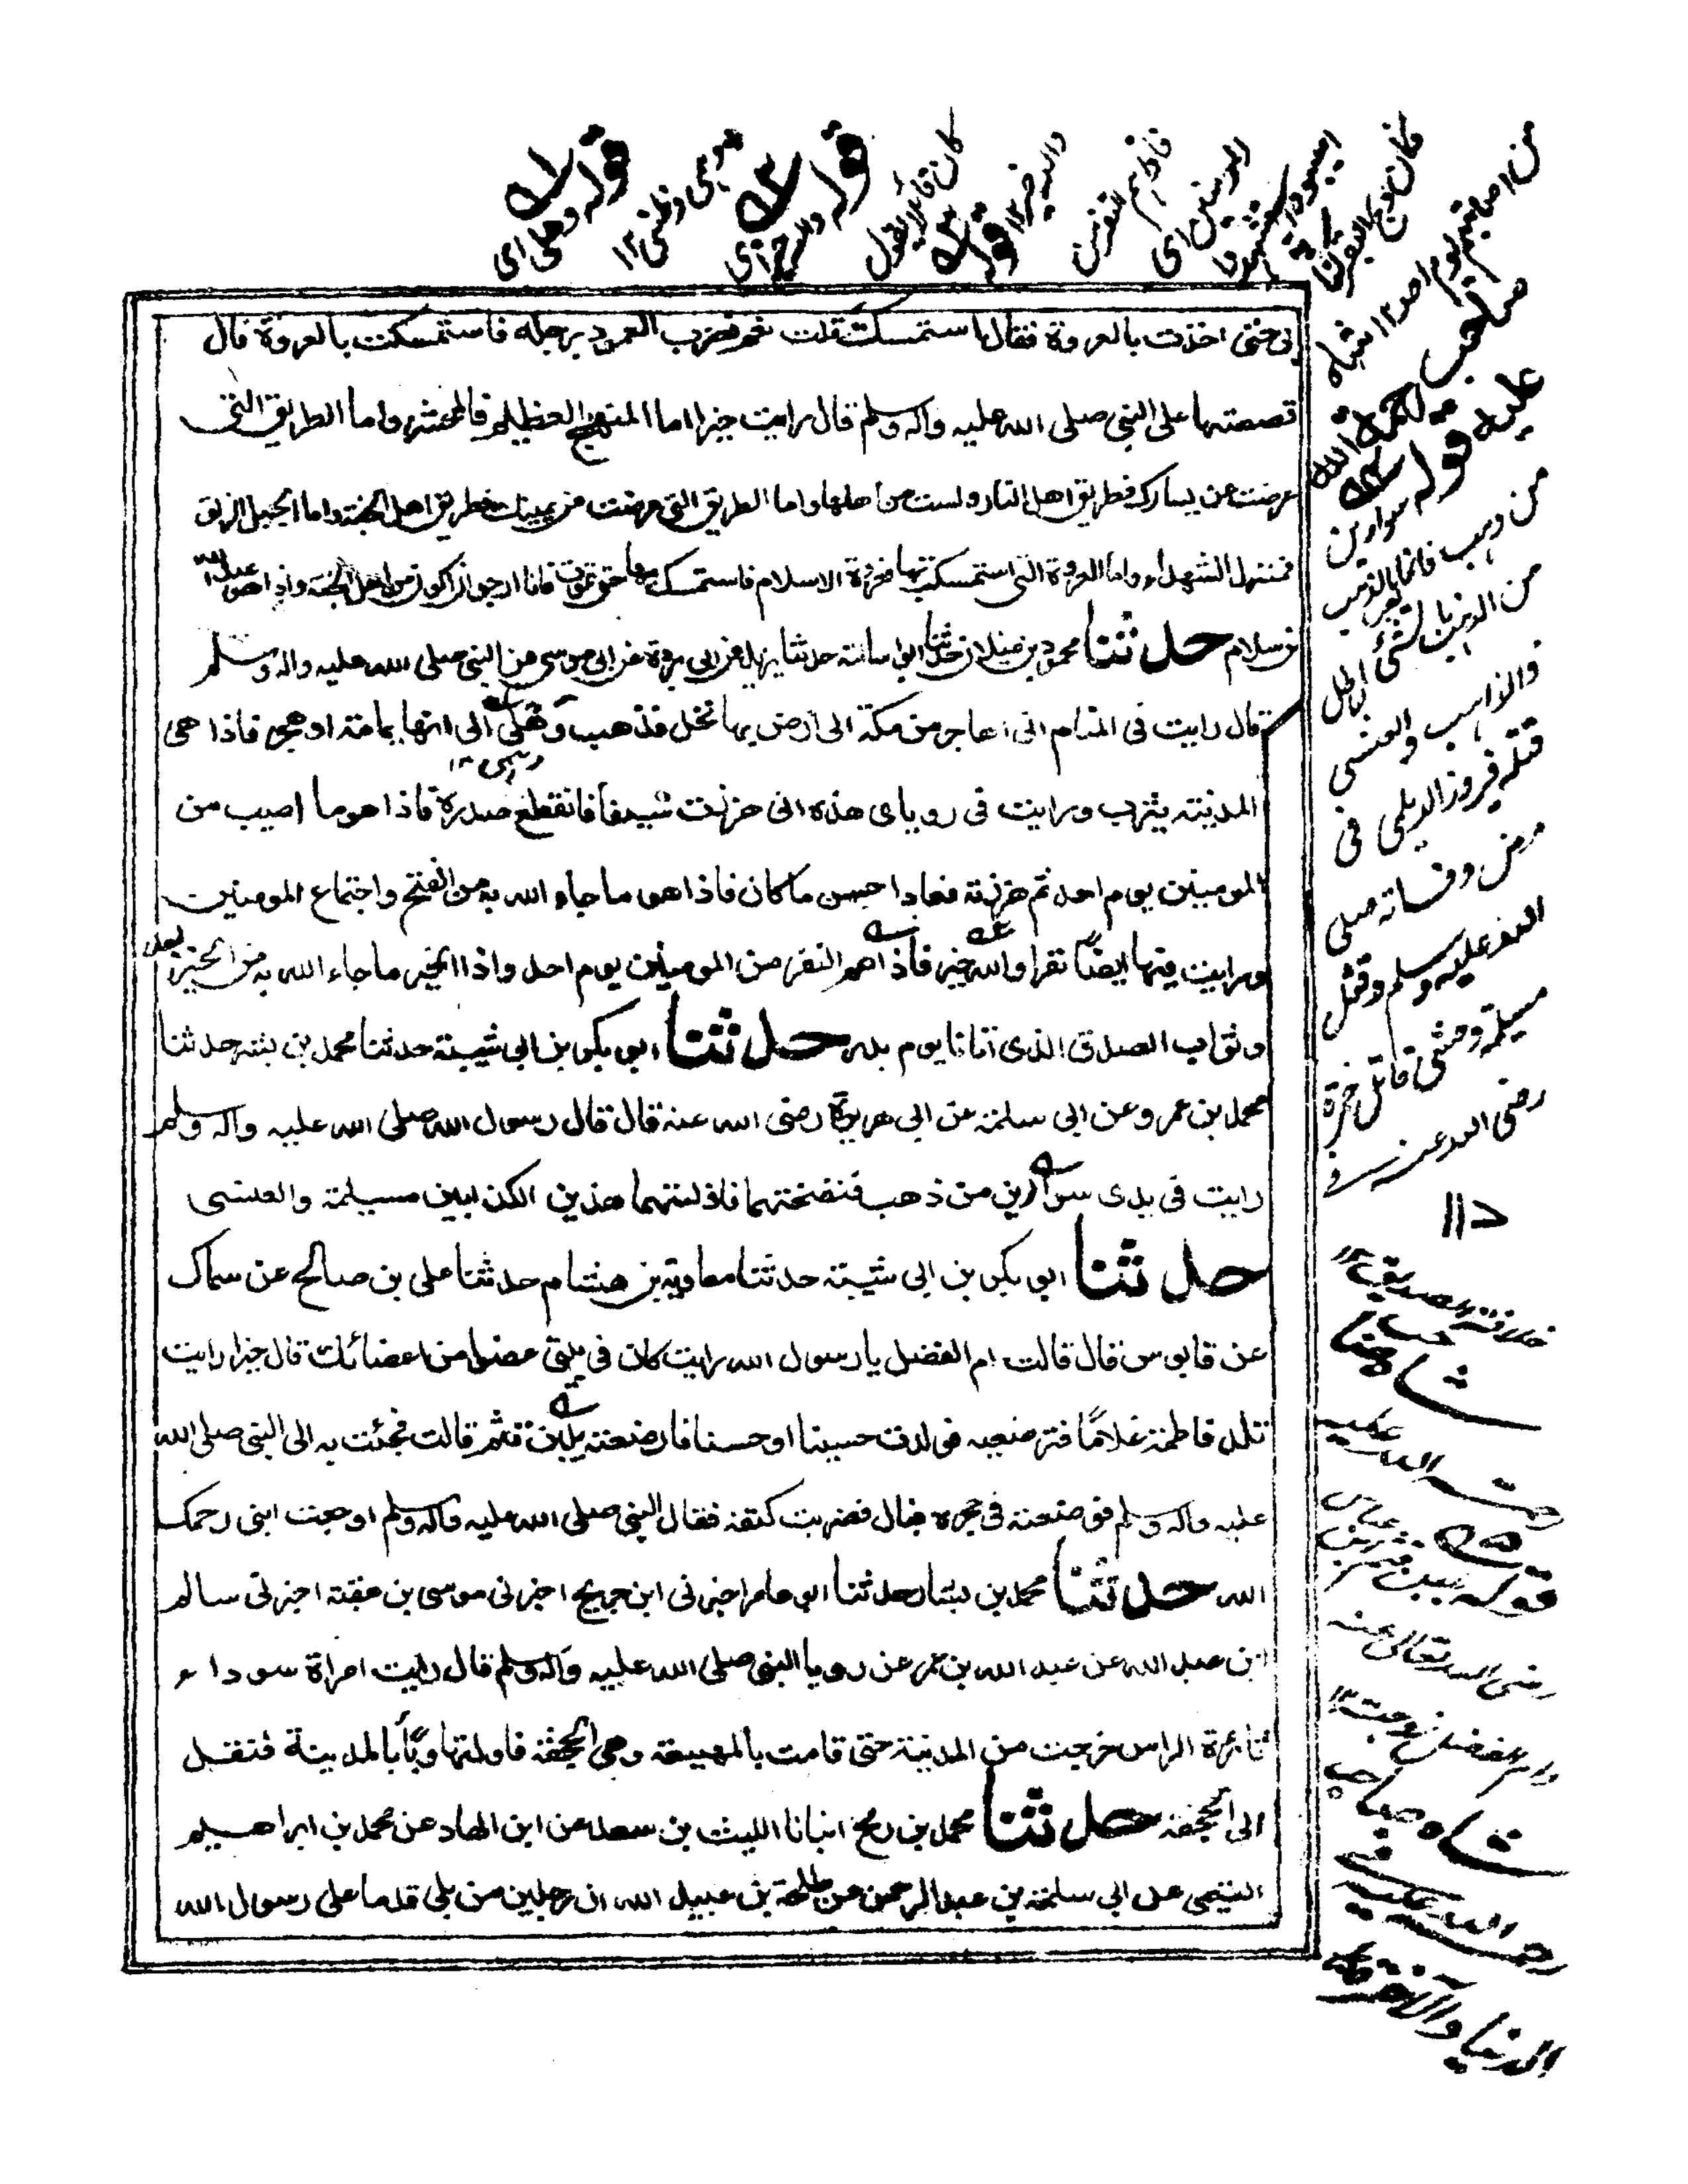 بى حتى اخذت بالعروة فقال استمسكت قلت نعم فضرب العمود برجله فاستمسكت بالعروة قال
قصصتها على النبى صلى الله عليه وآله وسلم قال رايت خيرا اما المنهج العظيم فالمحشر واما الطريق التى
عرضت عن يسارك فطريق اهل النار ولست من اهلها واما الطريق التى عرضت عن يمينك فطريق اهل الجنة واما الجبل الزلق
فمنزل الشهداء واما العروة التى استمسكت بها فعروة الاسلام فاستمسك بها حتى تموت فانا ارجو ان اكون من اهل الجنة واذا هو عبد الله
بن سلام حدثنا محمود بن غيلان حدثنا ابو اسامة حدثنا بريد عن ابى بردة عن ابى موسى عن النبى صلى الله عليه واله وسلم
قال رايت فى المنام انى اهاجر من مكة الى ارض بها نخل فذهب وهلى الى انها يمامة او هجر فاذا هى
المدينة يثرب ورايت فى روياى هذه انى هززت سيفا فانقطع صدره فاذا هو ما اصيب من
المومنين يوم احد ثم هززته فعاد احسن ما كان فاذا هو ما جاء الله به من الفتح واجتماع المومنين
ورايت فيها ايضًا نفرا والله خير فاذا هم النفر من المومنين يوم احد واذا الخير ما جاء الله به من الخير بعد
وثواب الصدق الذى اتانا يوم بدر حدثنا ابو بكر بن ابى شيبة حدثنا محمد بن بشر حدثنا
محمد بن عمرو عن ابى سلمة عن ابى هريرة رضى الله عنه قال قال رسول الله صلى الله عليه وآله وسلم
رايت فى يدى سوارين من ذهب فنفختهما فاولتهما هذين الكذابين مسيلمة والعنسى
حدثنا ابو بكر بن ابى شيبة حدثنا معاوية بن هشام حدثنا على بن صالح عن سماك
عن قابوس قال قالت ام الفضل يا رسول الله رايت كان فى بيتى عضوا من اعضائك قال خيرا رايت
تلد فاطمة غلامًا فترضعيه فولدت حسينا او حسنا فارضعته بلبن قثم قالت فجئت به الى النبى صلى الله
عليه وآله وسلم فوضعته فى حجره فبال فضربت كتفه فقال النبى صلى الله عليه وآله وسلم اوجعت ابنى رحمك
الله حدثنا محمد بن بشار حدثنا ابو عامر اخبرنى ابن جريج اخبرنى موسى بن عقبة اخبرنى سالم
ابن عبد الله عن عبد الله بن عمر عن رويا النبى صلى الله عليه وآله وسلم قال رايت امراة سوداء
ثائرة الراس خرجت من المدينة حتى قامت بالمهيعة وهى الجحفة فاولتها وبًأ بالمدينة فنقل
الى الجحفة حدثنا محمد بن رمح انبانا الليث بن سعد عن ابن الهاد عن محمد بن ابراهيم
التيمى عن ابى سلمة بن عبد الرحمن عن طلحة بن عبيد الله ان رجلين من بلى قدما على رسول الله
قوله وهلى اى
وهمى وظنى ١٢
قوله والله خير اى
كان قائلا يقول
والله خير ١٢ قوله
من اصابتهم يوم احد ١٢ شاه
صاحب
رحمة الله
عليه قوله سوارين
من ذهب
قتله فيروز الديلمى فى
مرض وفاته صلى
الله عليه وسلم وقتل
مسيلمة وحشى قاتل حمزة
رضى الله عنه فى
خلافة الصديق ١٢
شاه صاحب
رحمة الله عليه
قوله بلبن قثم بن عباس
رضى الله تعالى عنه
وام الفضل زوجته ١٢
شاه صاحب
رحمة الله عليه فى
الدنيا والآخرة